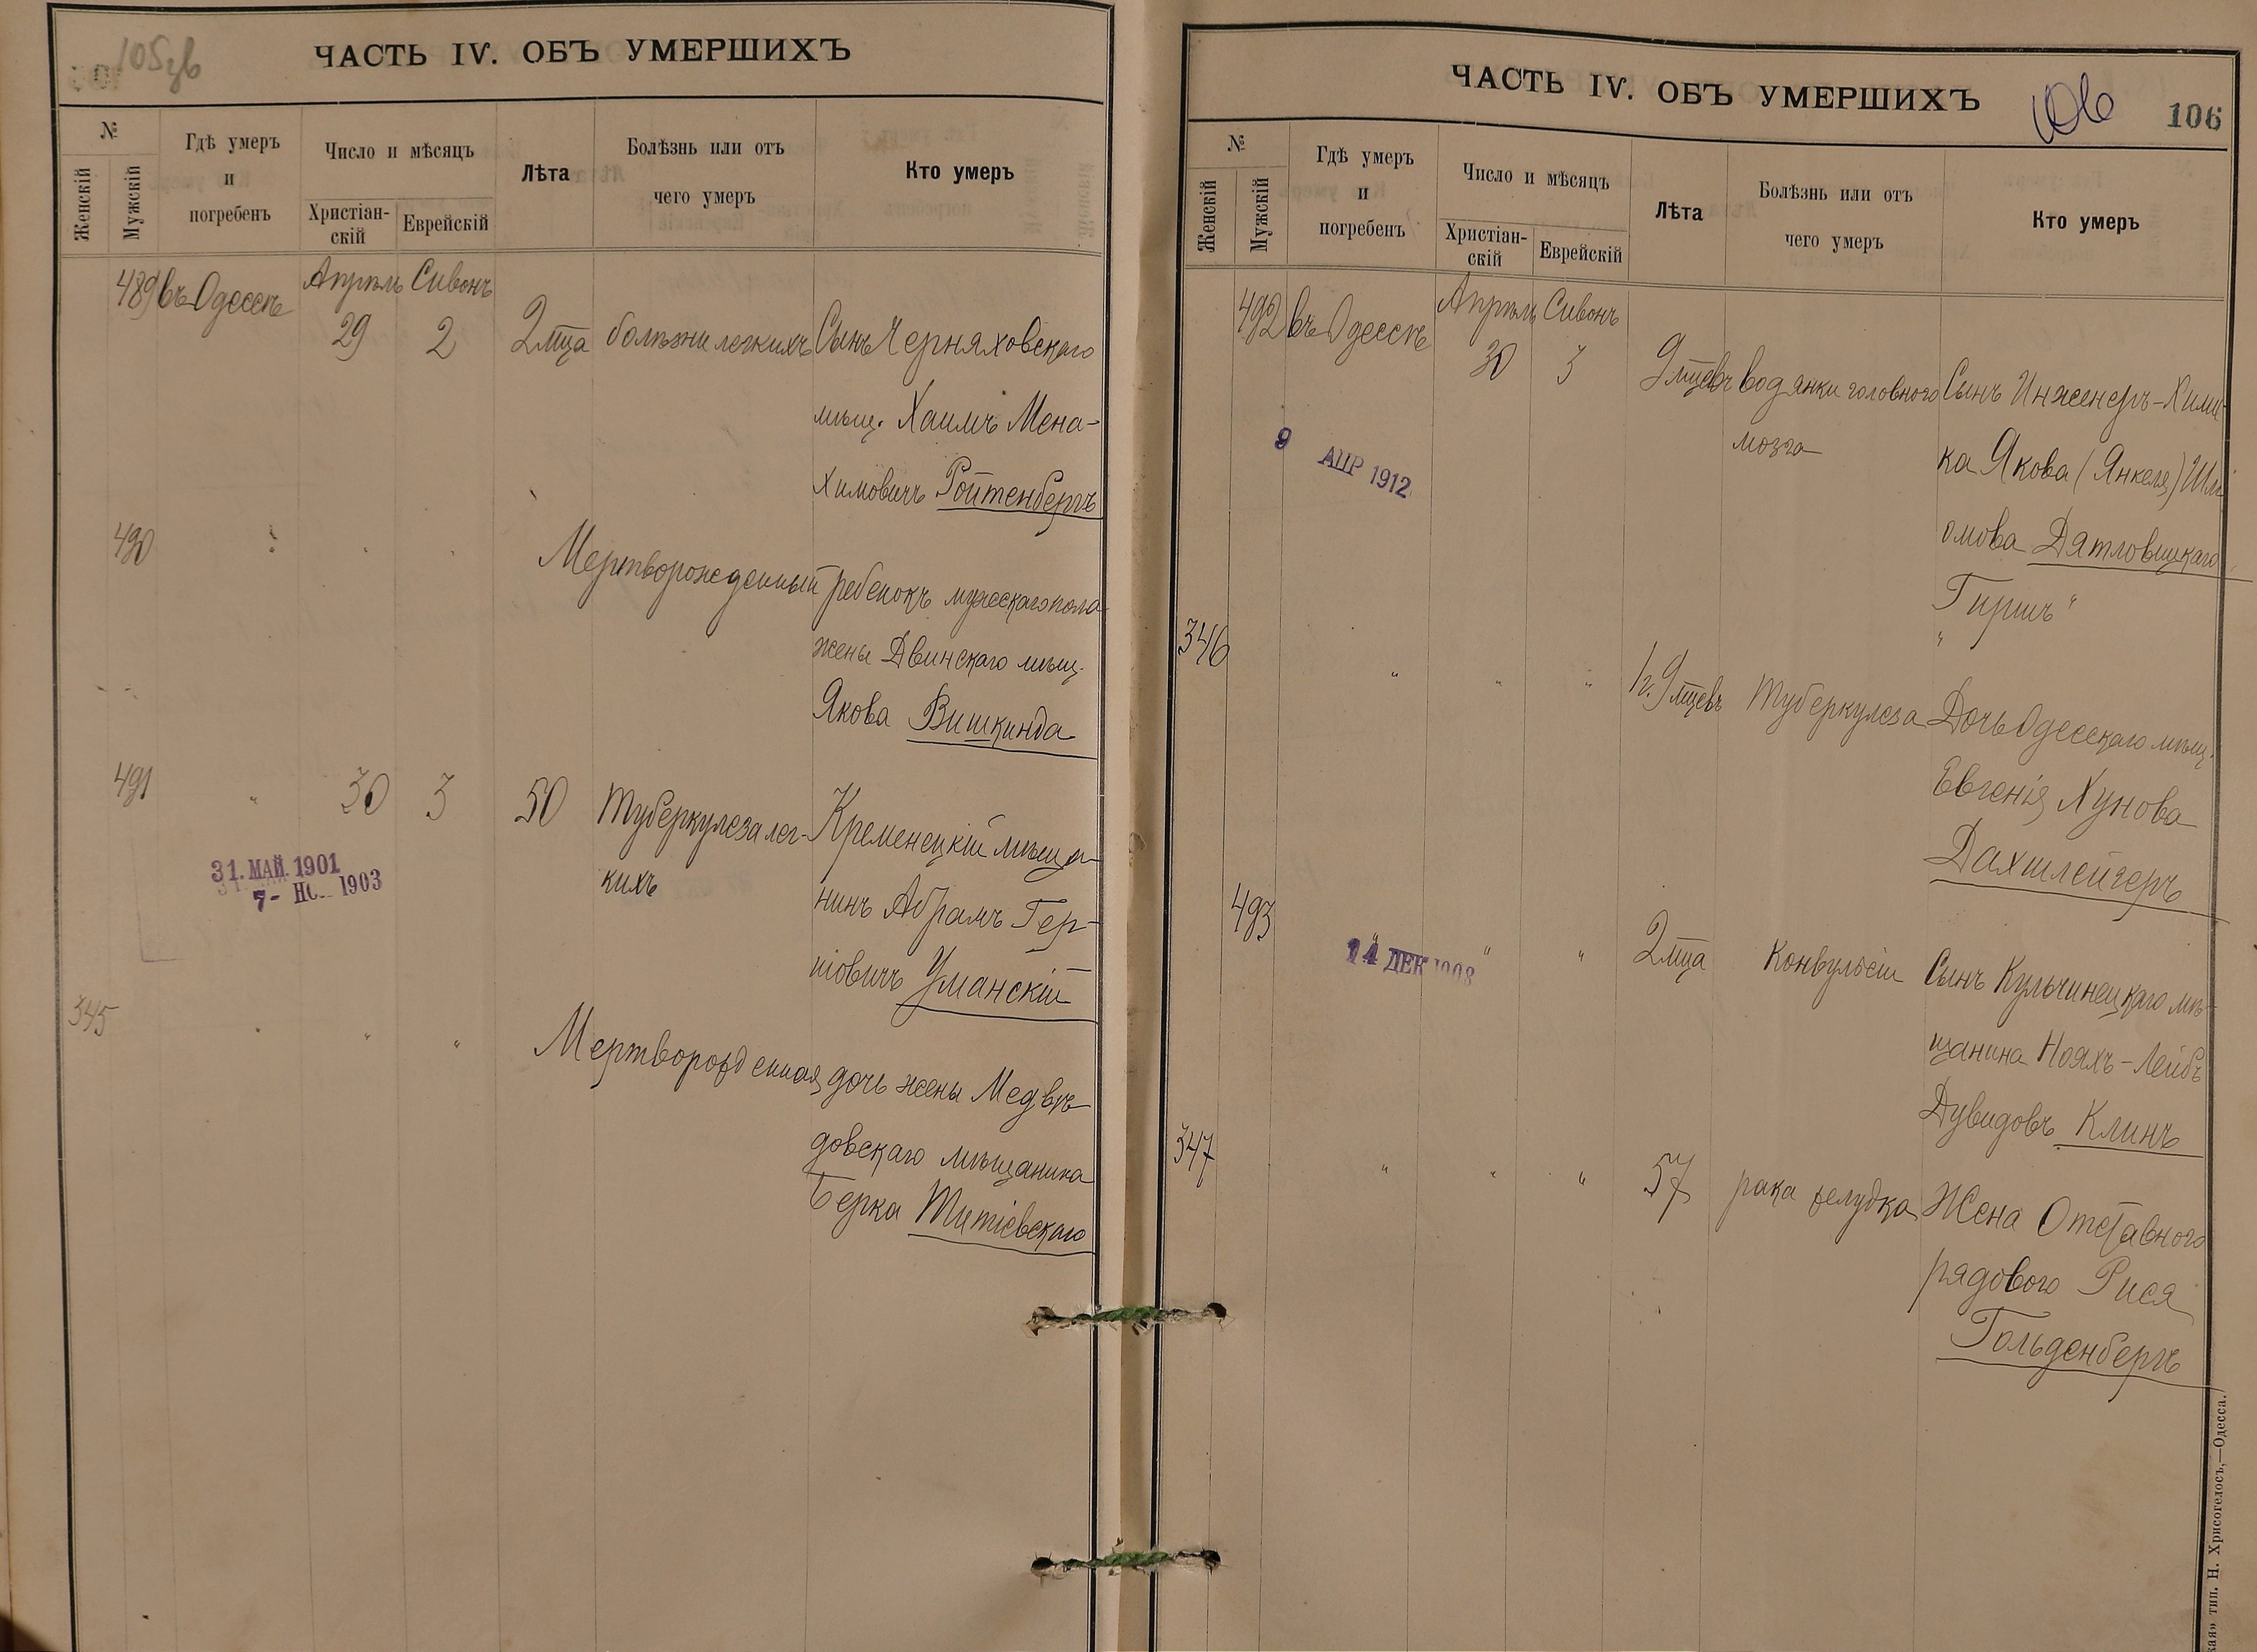 105 зв
ЧАСТЬ IV. ОБЪ УМЕРШИХЪ
№
Женскій
Мужскій
Гдѣ умеръ
и
погребенъ
Число и мѣсяцъ
Христіан-
скій
Еврейскій
Лѣта
Болѣзнь или отъ
чего умеръ
Кто умеръ
489 въ Одессѣ Апрѣль Сивонъ
29 2 2 мца болѣзни легкихъ Сынъ Черняховскаго
мѣщ. Хаимъ Мена-
химовичъ Ройтенбергъ
490 " " " Мертворожденный ребенокъ мужескаго пола
жены Двинскаго мѣщ.
Якова Вишкинда
491 " 30 3 50 Туберкулеза лег- Кременецкій мѣща-
кихъ нинъ Абрамъ Гер-
шовичъ Уманскій
31. МАЙ. 1901
7- НО 1903
345 " " " Мертворожденная дочь жены Медвѣ-
довскаго мѣщанина
Берка Титіевскаго
ЧАСТЬ IV. ОБЪ УМЕРШИХЪ
106
№
Женскій
Мужскій
Гдѣ умеръ
и
погребенъ
Число и мѣсяцъ
Христіан-
скій
Еврейскій
Лѣта
Болѣзнь или отъ
чего умеръ
Кто умеръ
492 въ Одессѣ Апрѣль Сивонъ
30 3 9 мцевъ водянки головного Сынъ Инженеръ-Хими-
мозга ка Якова (Янкеля) Шл
омова Дятловицкаго
"Гиршъ"
9 АПР 1912
346 " " " 1 г. 9 мцевъ Туберкулеза Дочь Одесскаго мѣщ.
Евгенія Хунова
Дахшлейгеръ
493 " " " 2 мца Конвульсіи Сынъ Кульчинецкаго мѣ-
щанина Нояхъ-Лейбъ
Дувидовъ Клинъ
14 ДЕК 1903
347 " " " 57 рака желудка Жена Отставного
рядового Рися
Гольденбергъ
тип. Н. Хрисогелосъ,—Одесса.